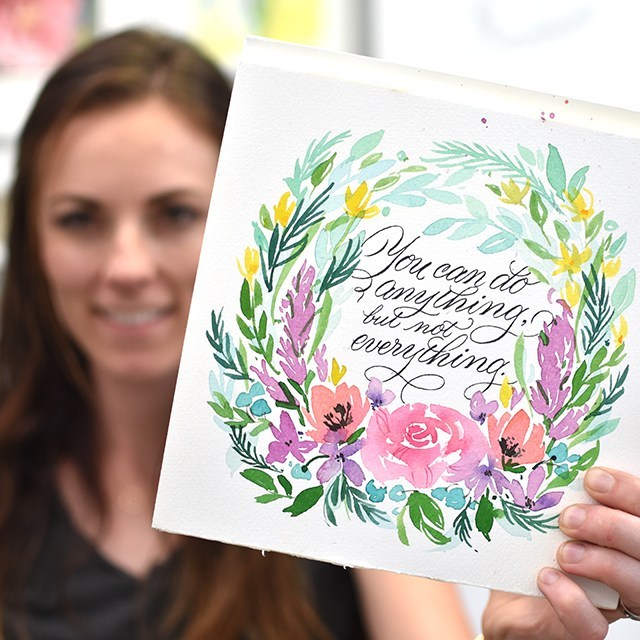 You can do
anything,
but not
everything.